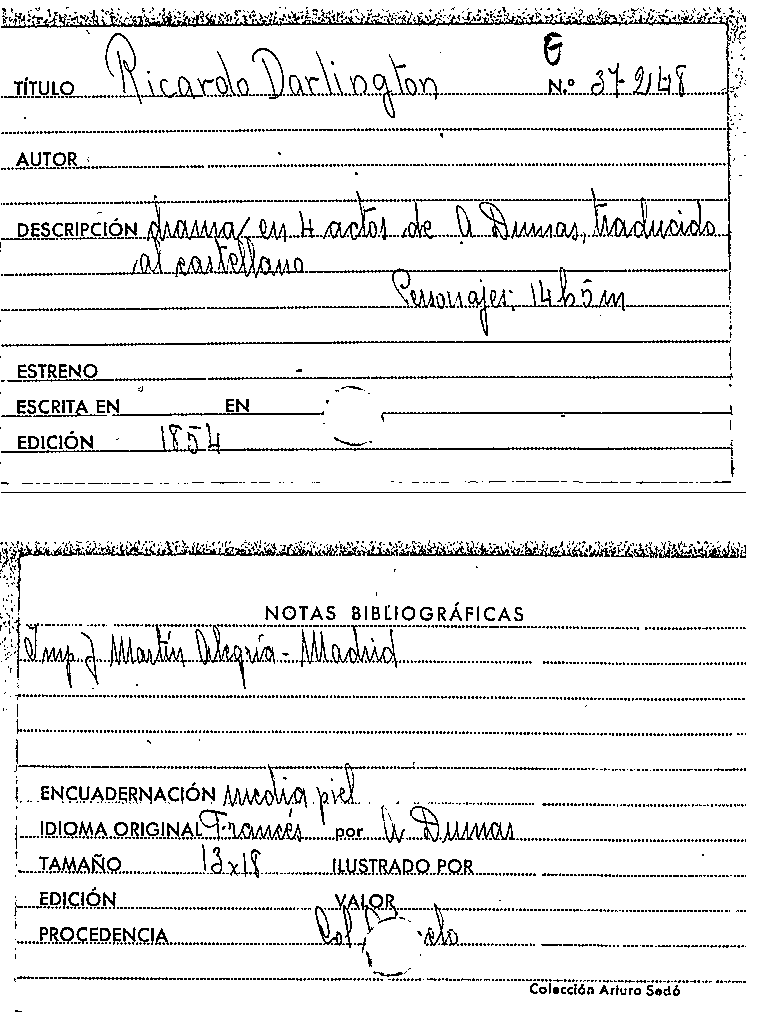 TÍTULO Ricardo Darlington N.º 37-2148
AUTOR
DESCRIPCIÓN drama en 4 actos de A Dumas, traducido
al castellano
Personajes: 14h 5m
ESTRENO
ESCRITA EN EN
EDICIÓN 1854
NOTAS BIBLIOGRÁFICAS
Imp J Martín Alegría - Madrid
ENCUADERNACIÓN media piel
IDIOMA ORIGINAL Francés por A Dumas
TAMAÑO 13x18 ILUSTRADO POR
EDICIÓN VALOR
PROCEDENCIA Col.
Colección Arturo Sedó